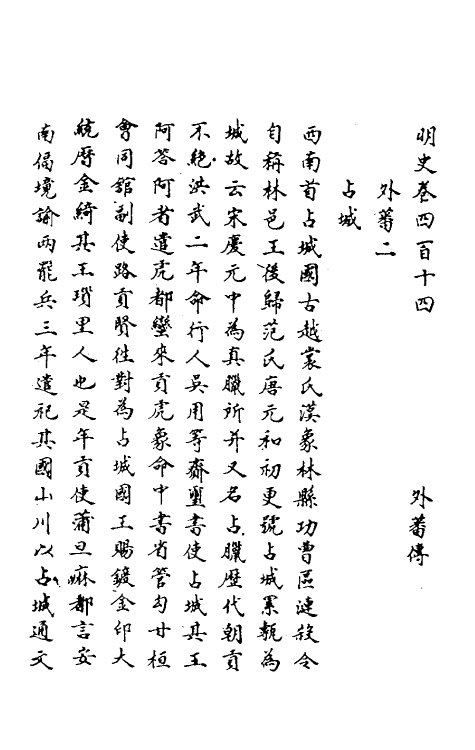 明史卷四百十四　外蕃傳
外蕃二
占城
西南首占城國古越裳氏漢象林縣功曹區連殺令
自稱林邑王後歸范氏唐元和初更號占城累執為
城故云宋慶元中為真臘所并又名占臘歷代朝貢
不絶洪武二年命行人吳用等齎璽書使占城其王
阿荅阿者遣虎都蠻來貢虎象命中書省管勾甘桓
會同舘副使路貢賢往對為占城國王賜鍍金印大
統厯金綺其王瑣里人也是年貢使蒲旦麻都言安
南偪境諭两罷兵三年遣祀其國山川以占城通文